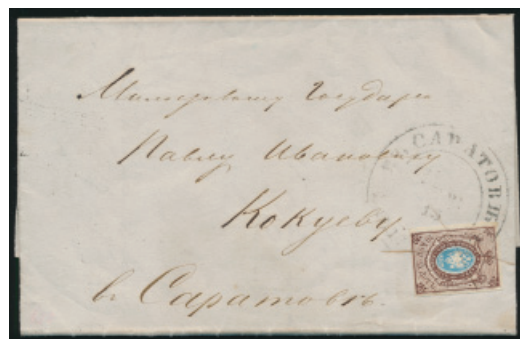 Милостивому Государю
Павлу Ивановичу
Кокуеву.
в Саратовъ.
САРАТОВЪ
18